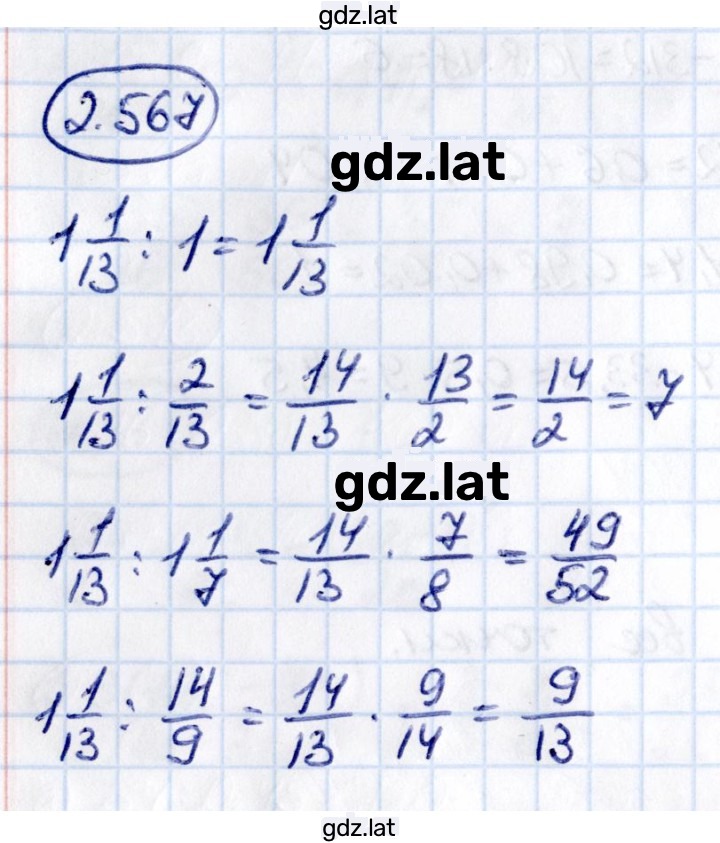 gdz.lat
2.567
gdz.lat
1 1/13 : 1 = 1 1/13
1 1/13 : 2/13 = 14/13 · 13/2 = 14/2 = 7
gdz.lat
1 1/13 : 1 1/7 = 14/13 · 7/8 = 49/52
1 1/13 : 14/9 = 14/13 · 9/14 = 9/13
gdz.lat